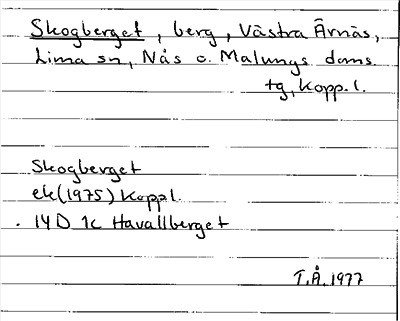 Skogberget, berg, Västra Ärnäs,
Lima sn, Nås o. Malungs doms.
tg, Kopp. l.
Skogberget
ek (1975) Kopp l.
14 D 1c Havallberget
T.Å. 1977